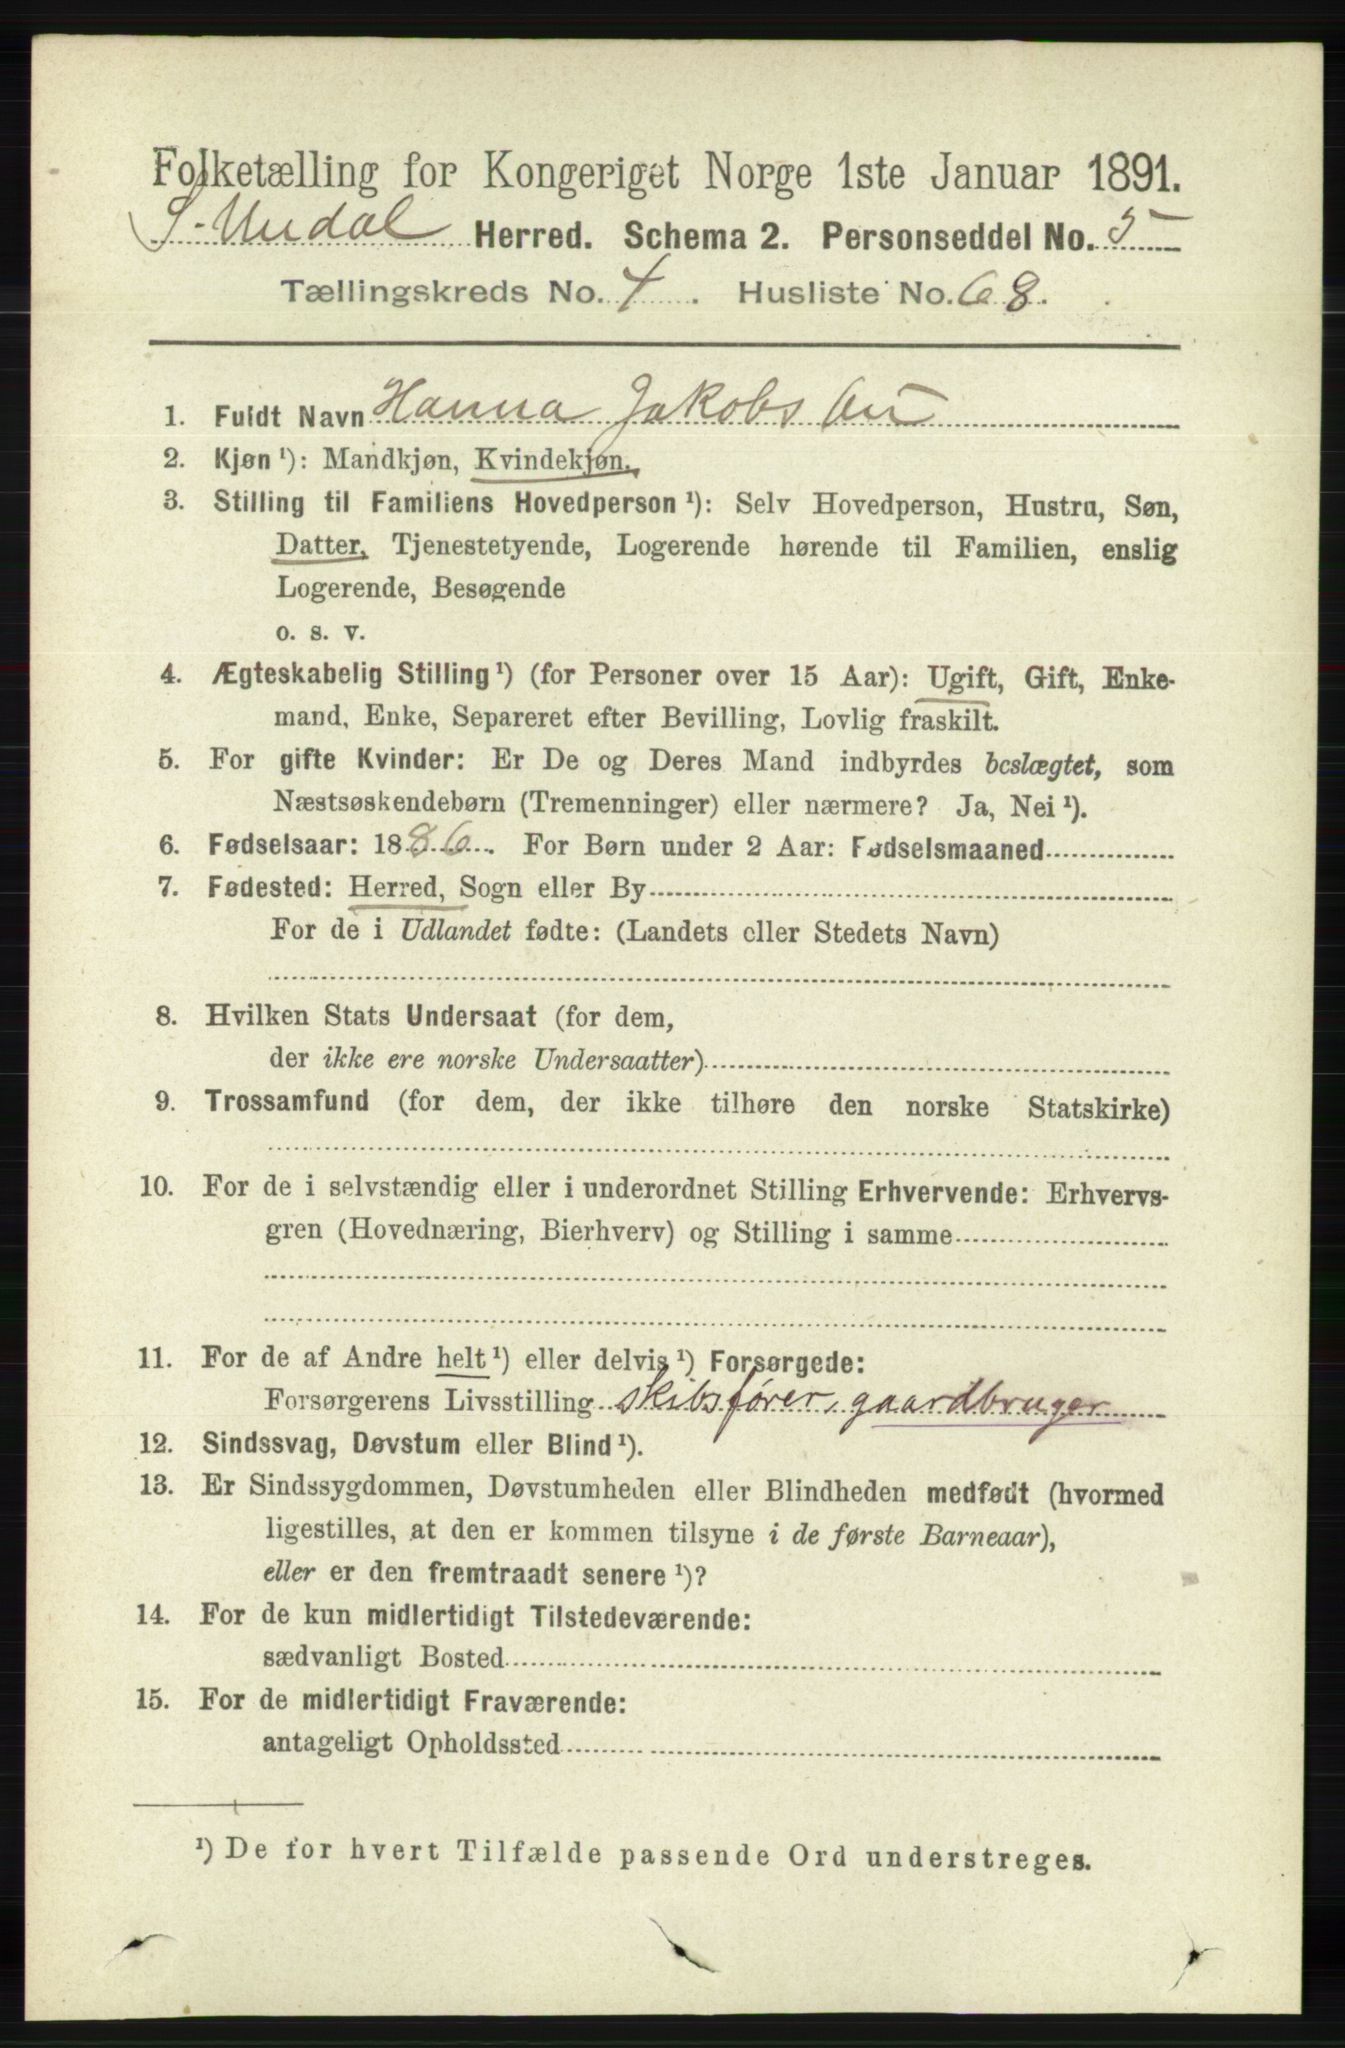 Folketælling for Kongeriget Norge 1ste Januar 1891.
S. Undal Herred. Schema 2. Personseddel No. 5
Tællingskreds No. 4. Husliste No. 68.
1. Fuldt Navn Hanna Jakobs
2. Kjøn ¹): Mandkjøn, Kvindekjøn.
3. Stilling til Familiens Hovedperson ¹): Selv Hovedperson, Hustru, Søn,
Datter, Tjenestetyende, Logerende hørende til Familien, enslig
Logerende, Besøgende
o. s. v.
4. Ægteskabelig Stilling ¹) (for Personer over 15 Aar): Ugift, Gift, Enke-
mand, Enke, Separeret efter Bevilling, Lovlig fraskilt.
5. For gifte Kvinder: Er De og Deres Mand indbyrdes beslægtet, som
Næstsøskendebørn (Tremenninger) eller nærmere? Ja, Nei ¹).
6. Fødselsaar: 1886. For Børn under 2 Aar: Fødselsmaaned
7. Fødested: Herred, Sogn eller By
For de i Udlandet fødte: (Landets eller Stedets Navn)
8. Hvilken Stats Undersaat (for dem,
der ikke ere norske Undersaatter)
9. Trossamfund (for dem, der ikke tilhøre den norske Statskirke)
10. For de i selvstændig eller i underordnet Stilling Erhvervende: Erhvervs-
gren (Hovednæring, Bierhverv) og Stilling i samme
11. For de af Andre helt ¹) eller delvis ¹) Forsørgede:
Forsørgerens Livsstilling skibsfører, gaardbruger
12. Sindssvag, Døvstum eller Blind ¹).
13. Er Sindssygdommen, Døvstumheden eller Blindheden medfødt (hvormed
ligestilles, at den er kommen tilsyne i de første Barneaar),
eller er den fremtraadt senere ¹)?
14. For de kun midlertidigt Tilstedeværende:
sædvanligt Bosted
15. For de midlertidigt Fraværende:
antageligt Opholdssted
¹) De for hvert Tilfælde passende Ord understreges.